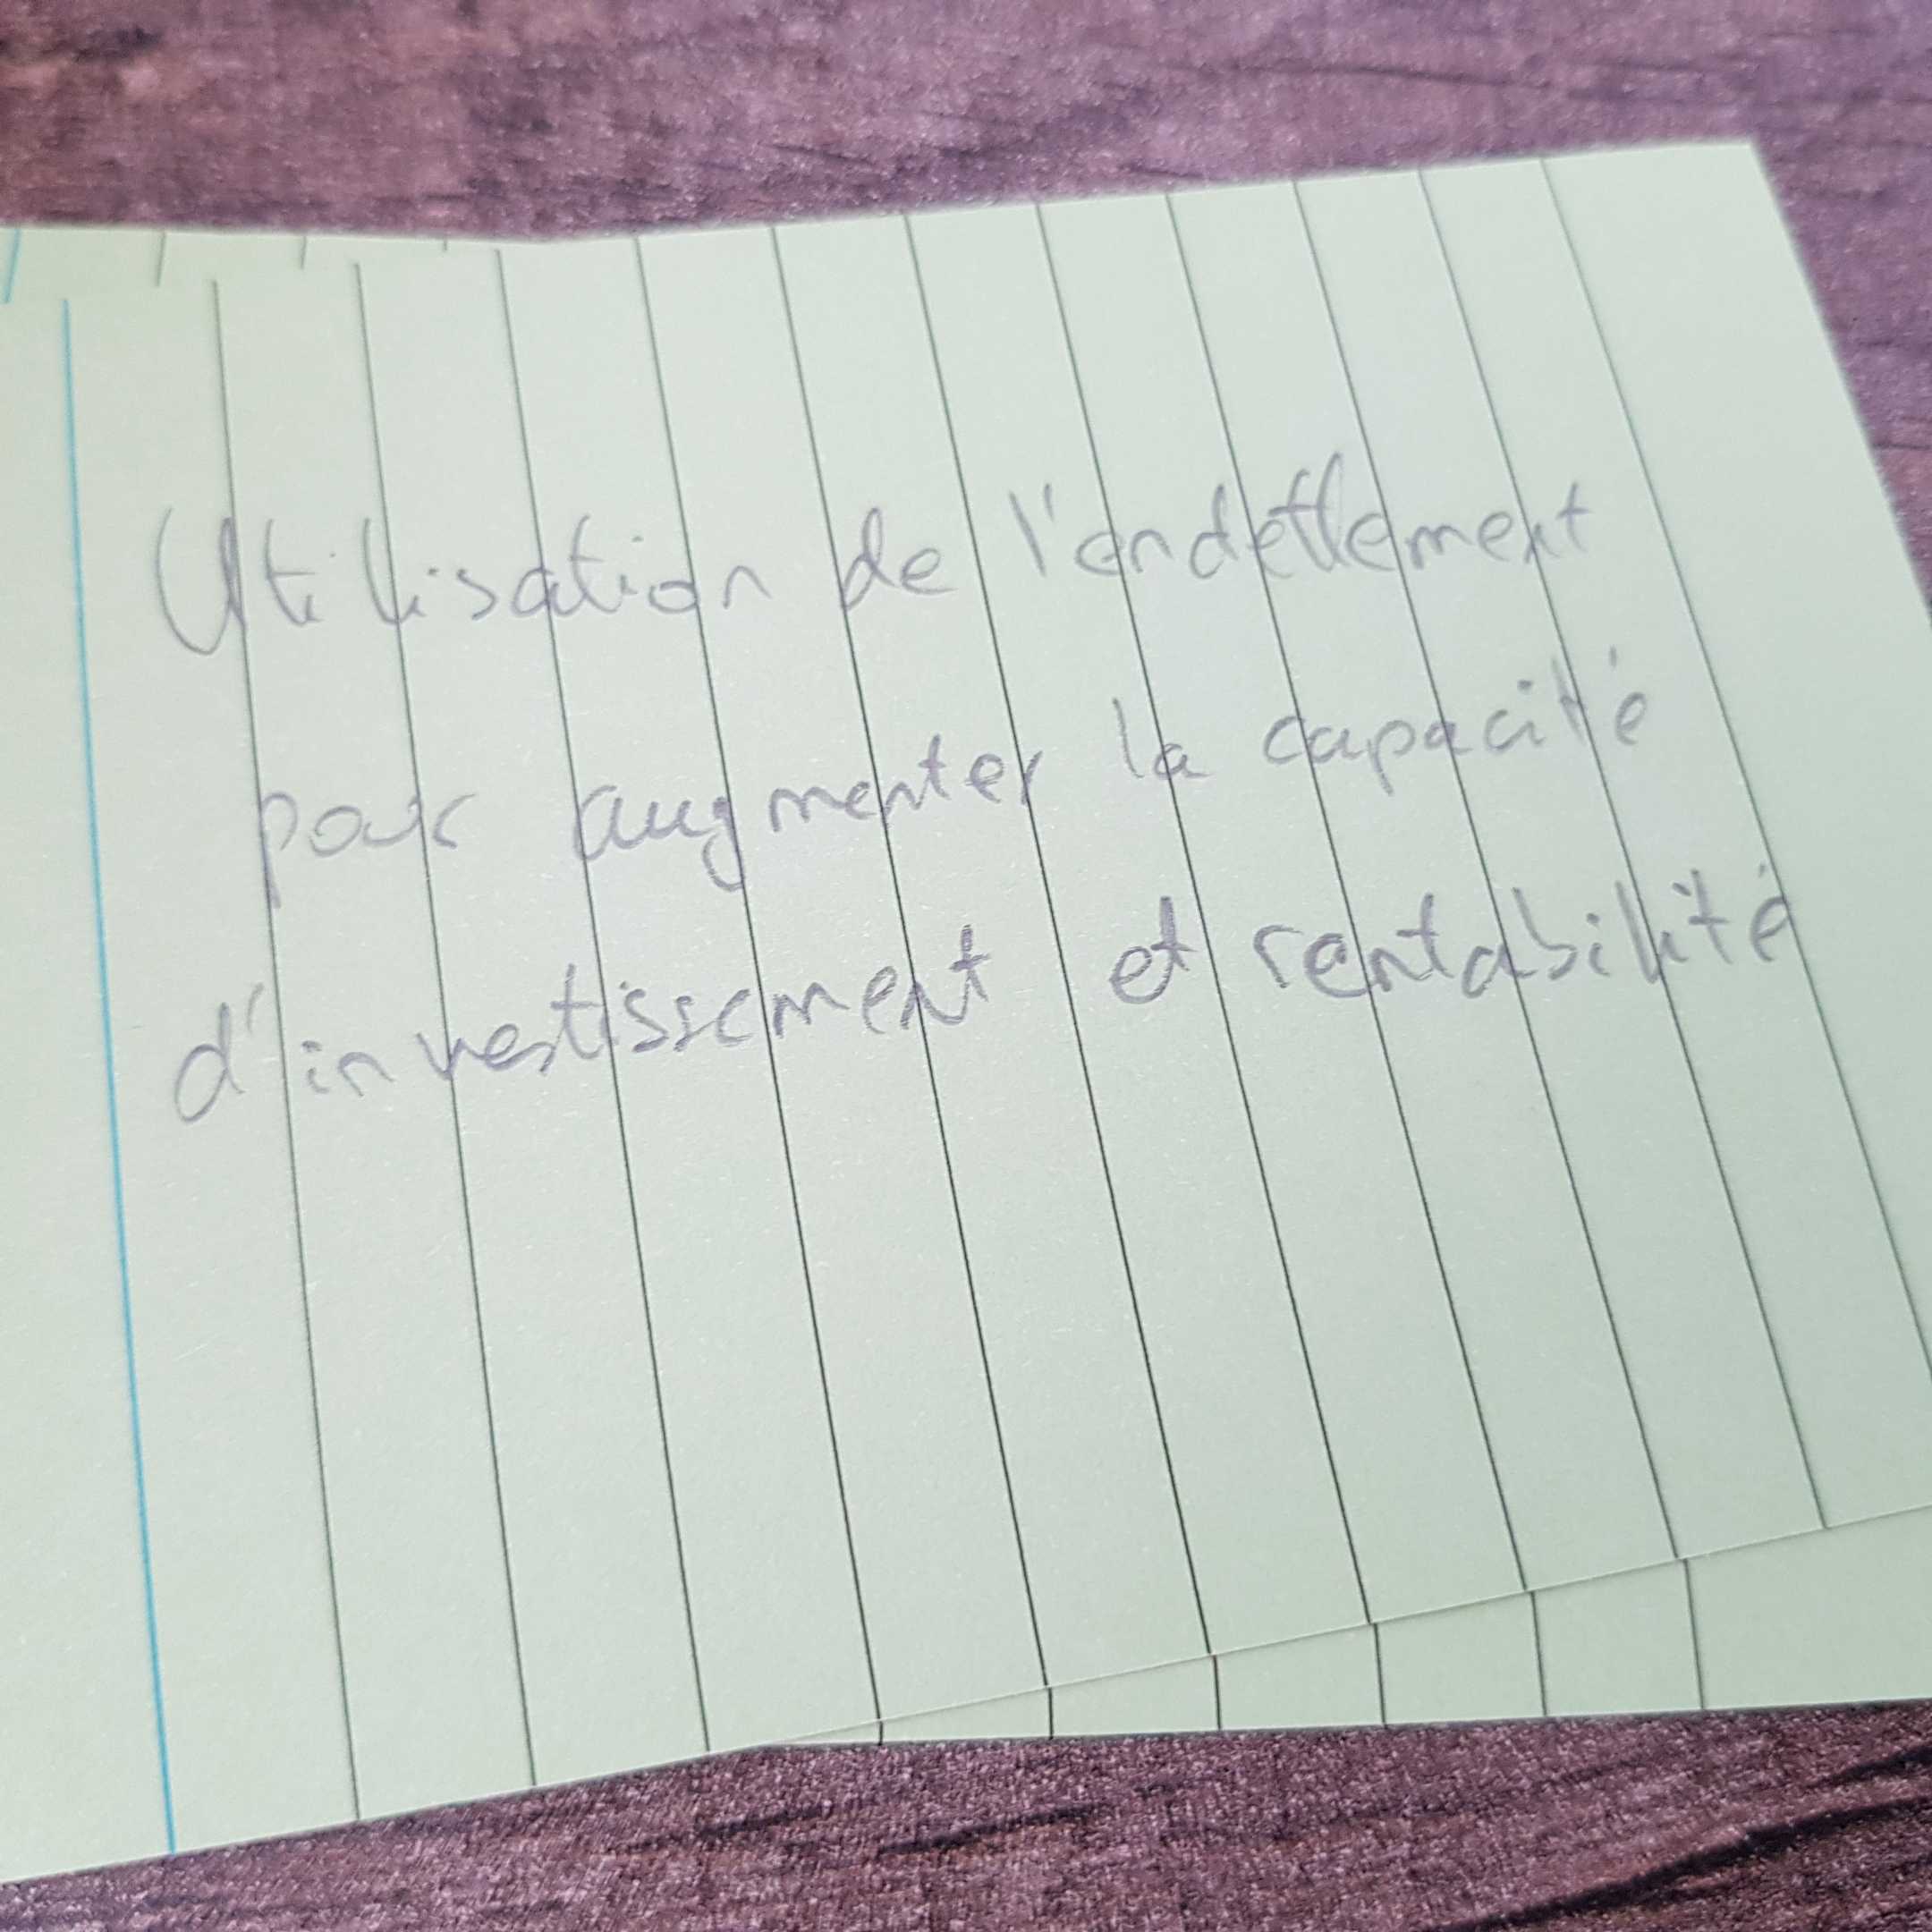 Utilisation de l'endettement
pour augmenter la capacité
d'investissement et rentabilité